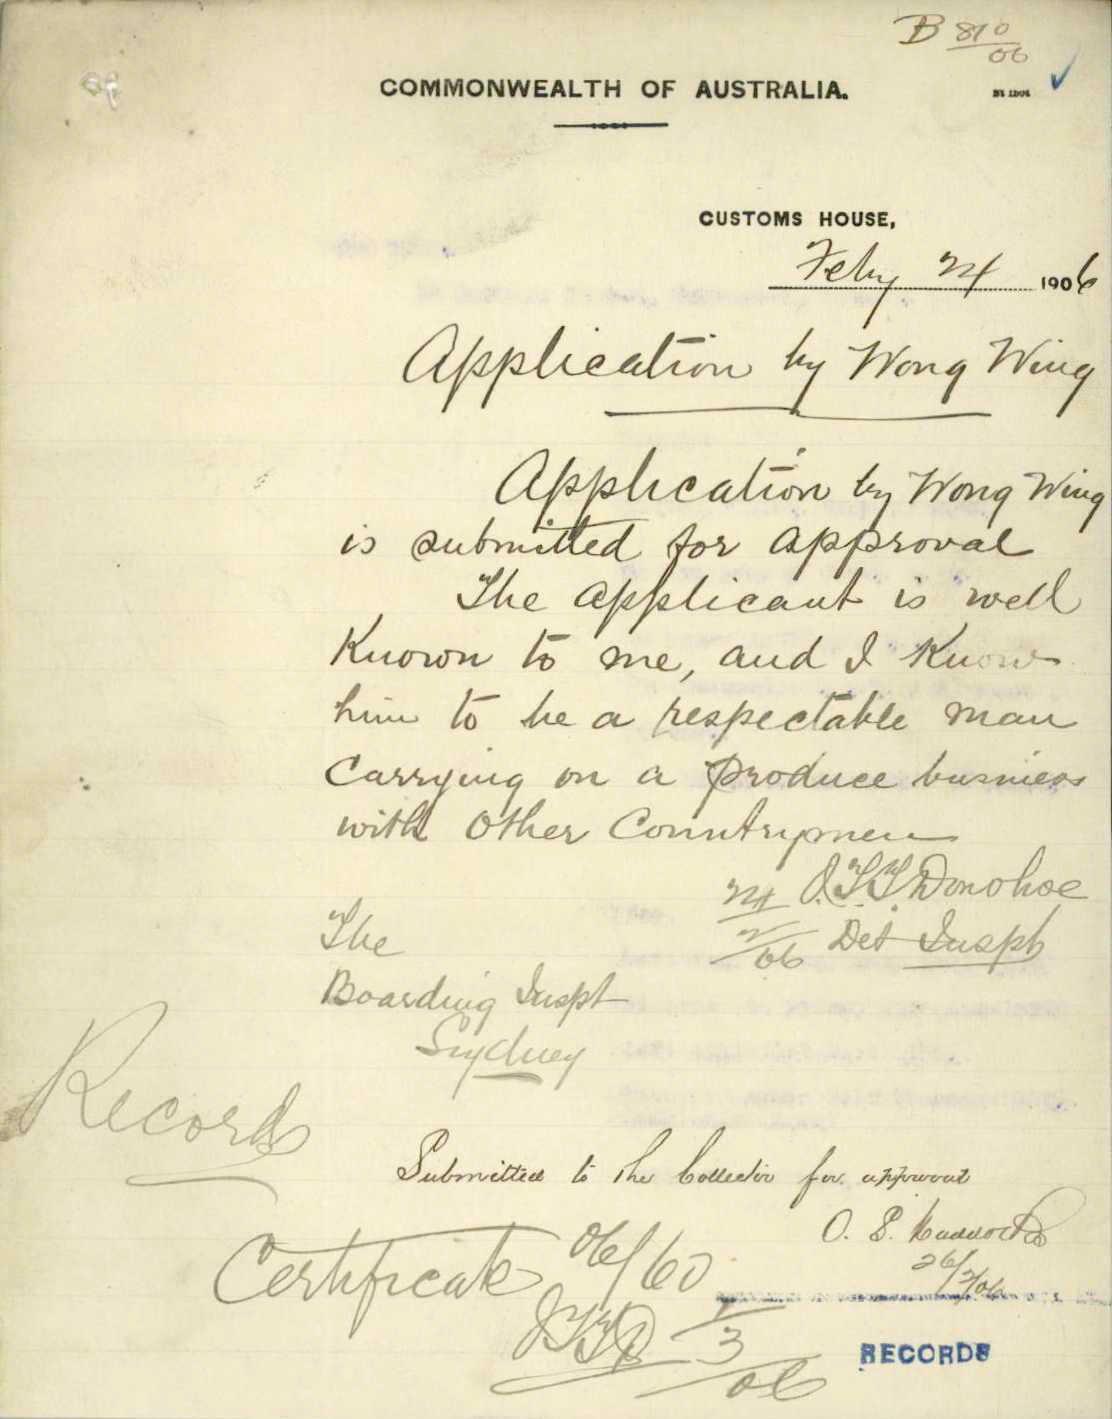 B 810/06
COMMONWEALTH OF AUSTRALIA.
CUSTOMS HOUSE,
Feby 24 1906
Application by Wong Wing
Application by Wong Wing
is submitted for approval
The applicant is well
Known to me, and I Know
him to be a respectable man
Carrying on a produce business
with other Countrymen
24/2/06 J.T.T. Donohoe
Det Inspt
The
Boarding Inspt
Sydney
Records
Submitted to the Collector for approval
26/2/06
Certificate 06/60
JTTD 1/3/06
RECORDS